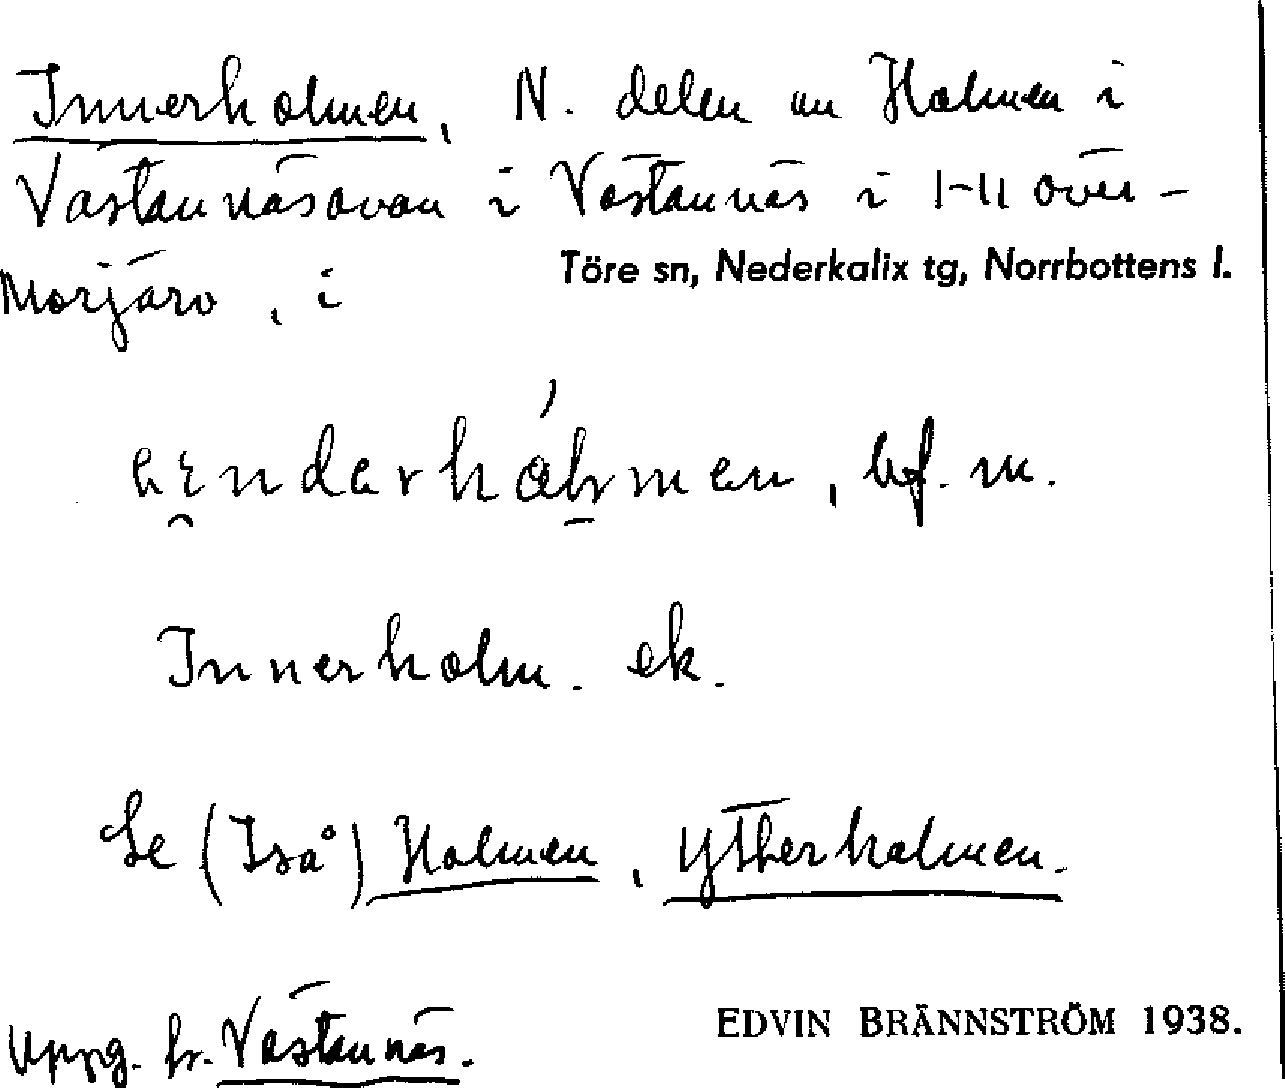 Innerholmen, N. delen av Holmen i
Västannäsavan i Västannäs i 1-11 Över-
Morjärv, i Töre sn, Nederkalix tg, Norrbottens l.
bf. m.
Innerholm. ek.
Se (Iså) Holmen, Ytterholmen.
Uppg. fr. Västannäs. EDVIN BRÄNNSTRÖM 1938.